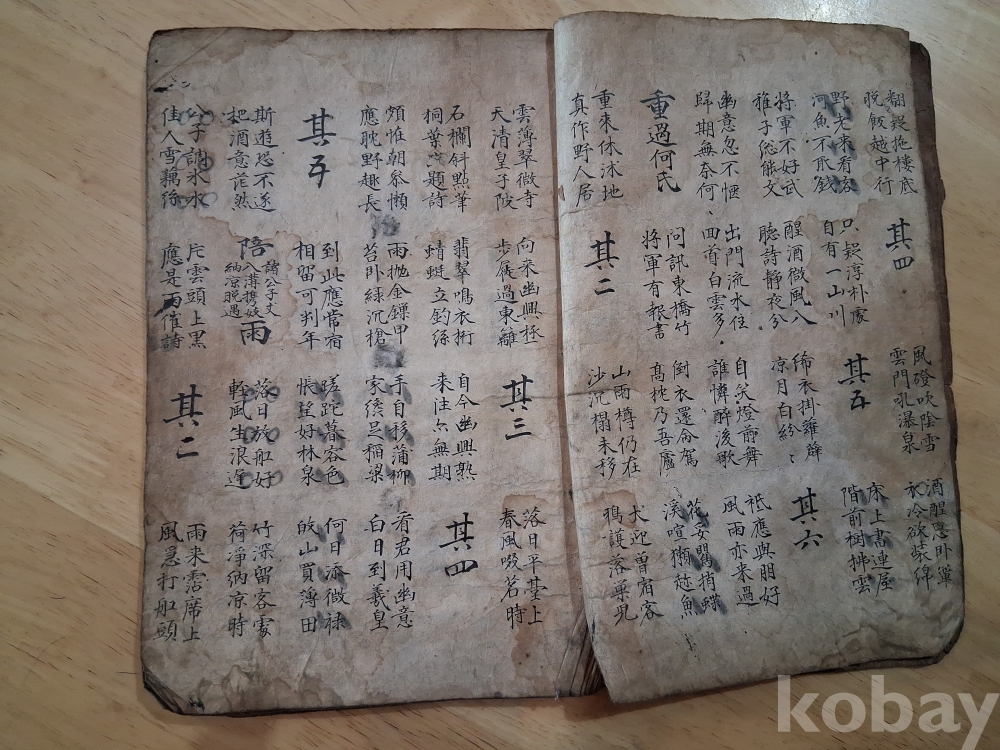 翻疑拖樓底
晚飯越中行
其四
風磴吹陰雪
雲門吼瀑泉
酒醒思卧簟
衣冷欲裝綿
野老来看客
河魚不取錢
只疑淳朴處
自有一山川
其五
床上書連屋
階前樹拂雲
將軍不好武
稚子総能文
醒酒微風入
聽詩静夜分
絺衣掛蘿薜
凉月白紛〻
其六
幽意忽不愜
歸期無奈何
出門流水住
回首白雲多
自笑燈前舞
誰憐醉後歌
袛應與朋好
風雨亦来過
重過何氏
問訊東橋竹
將軍有報書
倒衣還命駕
髙枕乃吾廬
花妥鶯捎蝶
溪喧獺趂魚
重來休沐地
真作野人居
其二
山雨樽仍在
沙沉榻未移
犬迎曽宿客
鴉護落巢児
雲薄翠微寺
天清皇子陂
向来幽興極
步屧過東籬
其三
落日平臺上
春風啜茗時
石欄斜點筆
桐葉坐題詩
翡翠鳴衣桁
蜻蜓立釣絲
自今幽興熟
来往亦無期
其四
頗恠朝叅懶
應耽野趣長
雨抛金鎻甲
苔卧緑沉槍
手自移蒲柳
家纔足稲梁
看君用幽意
白日到羲皇
其五
到此應常宿
相留可判年
蹉跎暮容色
悵望好林泉
何日添微祿
皈山買薄田
斯遊恐不遂
把酒意茫然
陪諸公子丈八溝携妓納凉晚遇雨
落日放舡好
輕風生浪遅
竹深留客處
荷淨納凉時
公子調氷水
佳人雪藕絲
片雲頭上黒
應是雨催詩
其二
雨来霑席上
風急打舡頭
kobay